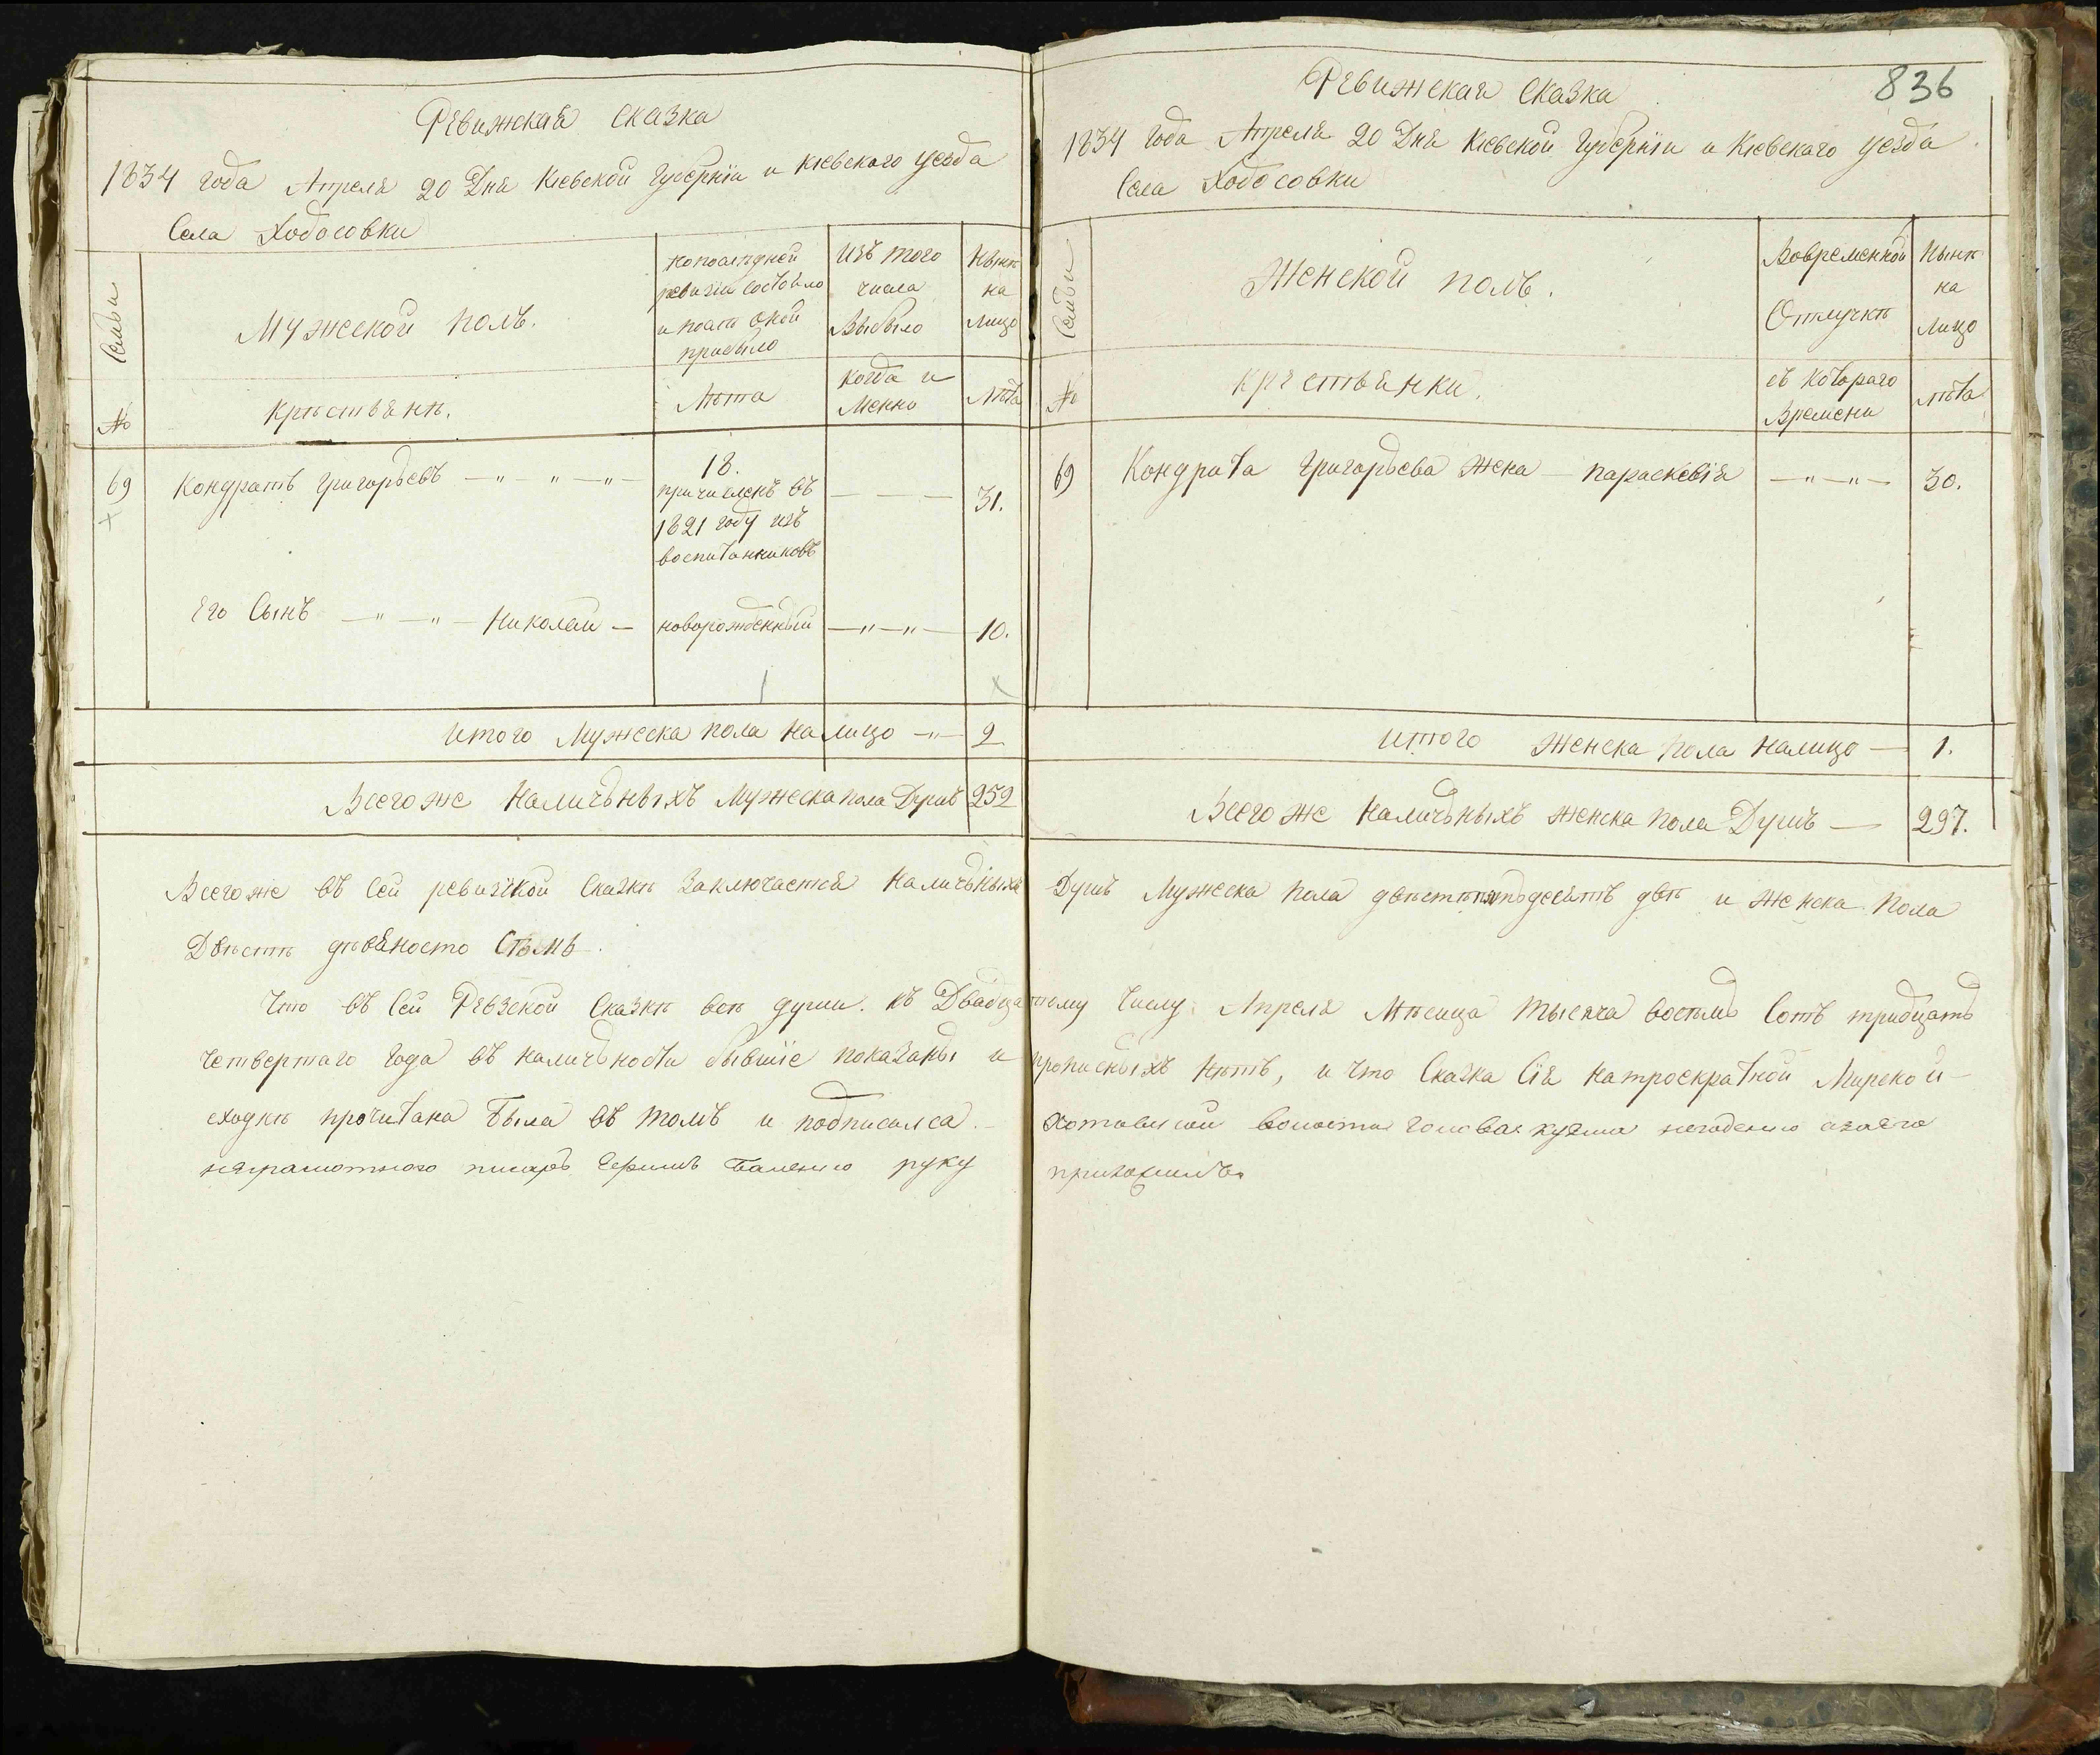 Ревижская сказка
1834 года Апреля 20 Дня Кіевской Губерніи и Кіевскаго уезда
Села Ходосовки
Семьи
№
Мужеской полъ.
Крѣстьянѣ.
Кпослѣдней
ревизіи состояло
и после оной
прибыло
Лѣта
Изъ того
числа
Выбыло
когда и
менно
Нынѣ
на
лицо
Лѣта
69
Кондратъ Григорьевъ
18.
причисленъ въ
1821 году изъ
воспитанниковъ
31.
Его Сынъ Николай
новорожденный
10.
Итого Мужеска пола налицо
2
Всего же Наличьныхъ Мужеска пола Душъ
252
836
Ревижская Сказка
1834 года Апреля 20 Дня Кіевской Губерніи и Кіевскаго уезда
Села Ходосовки
Семьи
№
Женской полъ.
Крестьянки.
Вовременной
Отлучкѣ
съ котораго
Времени
Нынѣ
на
лицо
лѣта
69
Кондрата Григорьева Жена Параскевія
30.
Итого Женска Пола Налицо
1.
Всего же Наличьныхъ женска пола Душъ
297.
Всего же въ Сей ревизской Сказкѣ Заключается Наличьныхъ Душъ Мужеска пола двѣстѣ пятьдесятъ двѣ и Женска Пола
Двѣстѣ дѣвяносто Сѣмь.
Что въ Сей Ревзской Сказкѣ всѣ души. къ Двадцатому Числу Апреля Мѣсяца Тысяча восѣмь Сотъ тридцать
четвертаго года въ наличьности бывшіе показаны и прописныхъ нѣтъ, и что Сказка Сія натроекратной Мирской
сходкѣ прочитана Была въ томъ и подписался. Хотовской волости голова кузма
неграмотного писарь руку приложилъ